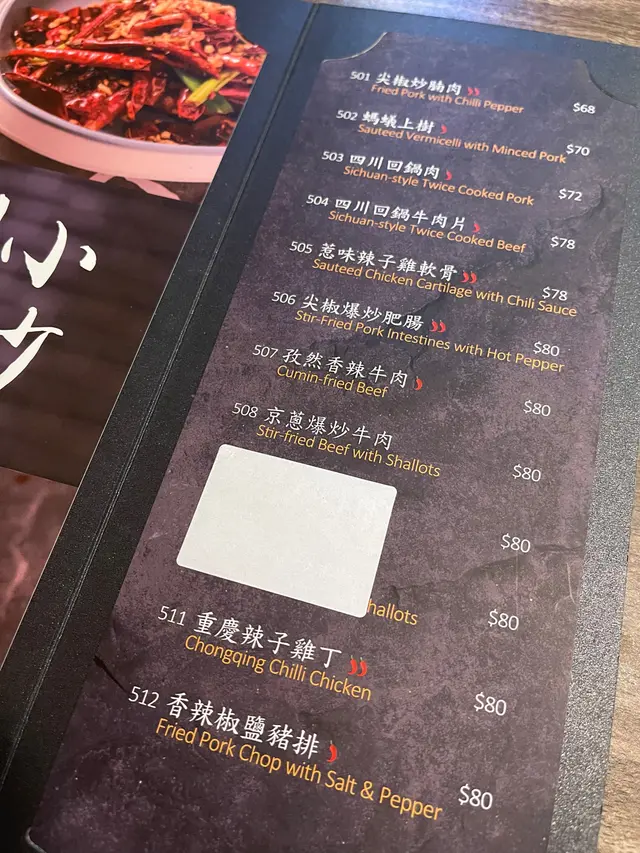 小
炒
501 尖椒炒腩肉
Fried Pork with Chilli Pepper $68
502 螞蟻上樹
Sauteed Vermicelli with Minced Pork $70
503 四川回鍋肉
Sichuan-style Twice Cooked Pork $72
504 四川回鍋牛肉片
Sichuan-style Twice Cooked Beef $78
505 惹味辣子雞軟骨
Sauteed Chicken Cartilage with Chili Sauce $78
506 尖椒爆炒肥腸
Stir-Fried Pork Intestines with Hot Pepper $80
507 孜然香辣牛肉
Cumin-fried Beef $80
508 京蔥爆炒牛肉
Stir-fried Beef with Shallots $80
$80
hallots $80
511 重慶辣子雞丁
Chongqing Chilli Chicken $80
512 香辣椒鹽豬排
Fried Pork Chop with Salt & Pepper $80